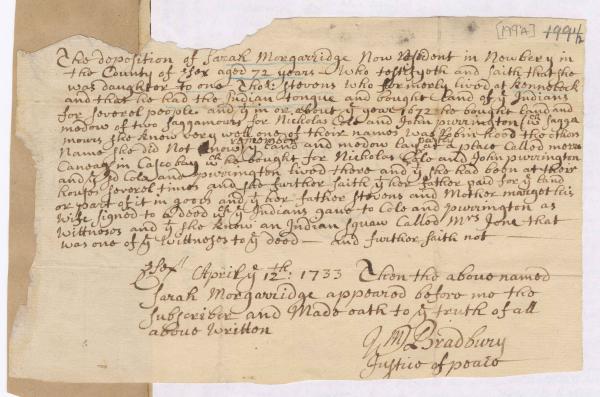 [199A] 199½
The deposition of Sarah Morgarridge Now Resident in Newbery in
the County of Essex aged 72 years - Who testifyoth and saith that she
was daughter to one Thos: Stevens Who formerly lived at Kennebeck
and that he had the Indian tongue and bought Land of ye Indians
for severel people and yt in or about ye year 1672 he bought land and
medow of two saggamours for Nicholas Cole and John purrington wch sagga
mours she know very well one of their names was Robin hood the other
Name she did Not remember ye land and medow lay at a place Called merre
Caneag in Casco bay wch he bought for Nicholas Cole and John purrington
and yt sd Cole and purrington lived there and yt she had been at there
houses severel times and she further saith yt her father paid for ye land
or part of it in goods and yt her father Stevens and Mother marget his
wife signed to a deed wch ye Indians gave to Cole and purrington as
Wittnoses and yt she know an Indian squaw Called Mrs Jone that
was one of ye Wittneses to ye deed — and further saith not
Essex April ye 12th: 1733 Then the above named
Sarah Morgarridge appeared before me the
subscriber and Made oath to ye truth of all
above Written
Bradbury
Justice of peace